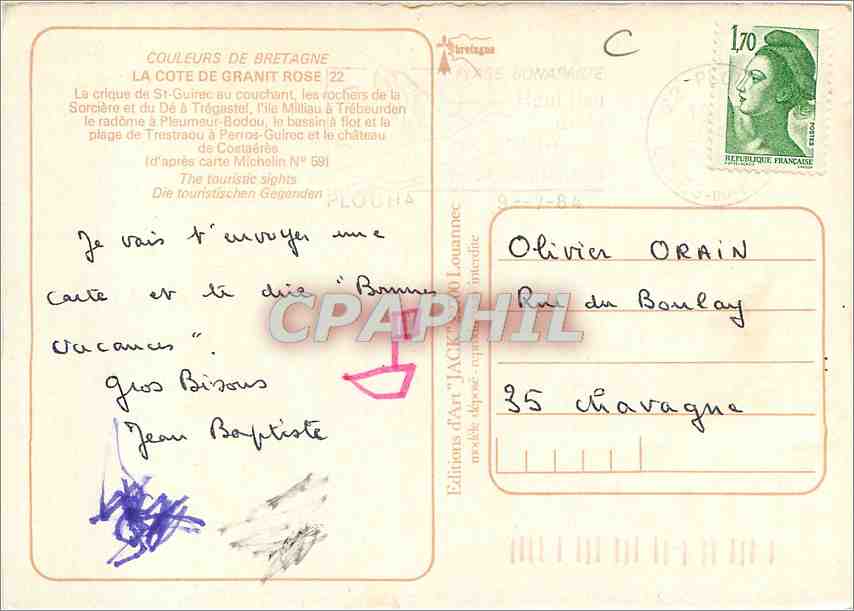 COULEURS DE BRETAGNE
LA COTE DE GRANIT ROSE 22
La crique de St-Guirec au couchant, les rochers de la
Sorcière et du Dé à Trégastel, l'ile Milliau à Trébeurden
le radôme à Pleumeur-Bodou, le bassin à flot et la
plage de Trestraou à Perros-Guirec et le château
de Costaérès
(d'après carte Michelin N° 59)
The touristic sights
Die touristischen Gegenden
Je vais t'envoyer une
carte et te dire "Bonnes
vacances".
Gros Bisous
Jean Baptiste
bretagne
C
1,70
POSTES
REPUBLIQUE FRANÇAISE
BONAPARTE
PLOUHA
9--7-84
Editions d'Art "JACK" Louannec
modèle déposé - interdite
Olivier ORAIN
Rue du Boulay
35 Chavagne
CPAPHIL